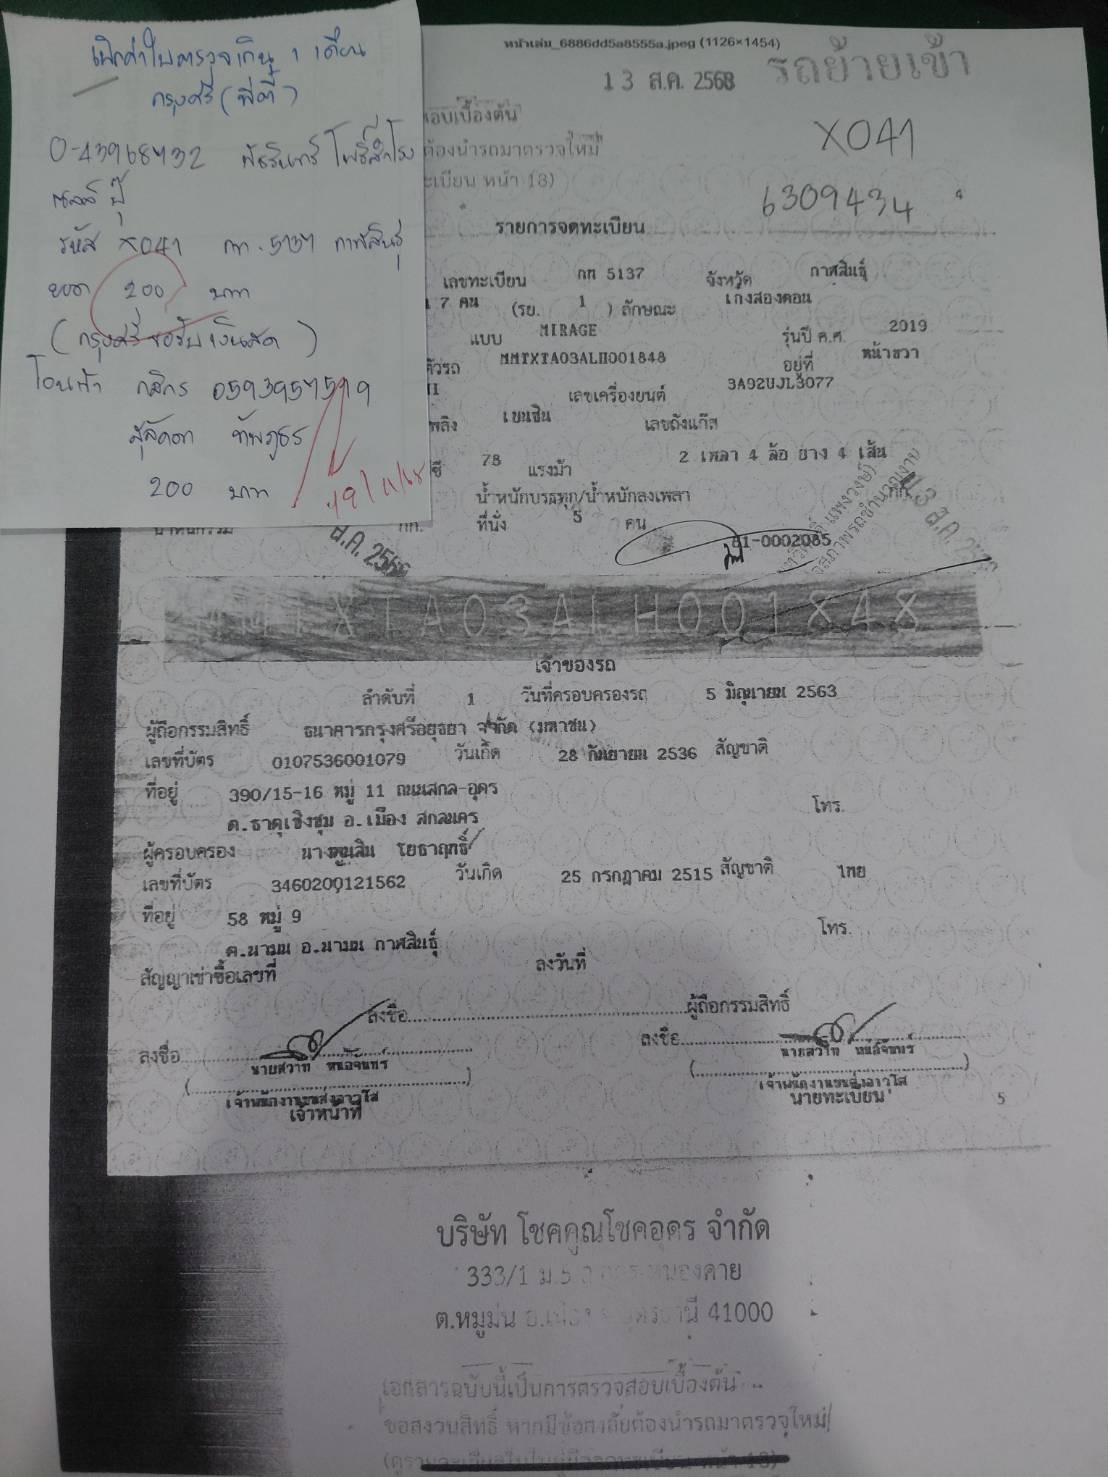 เบิกค่าใบตรวจเกิน 1 เดือน
กรุงศรี (พี่ตี้)
0-43968432 พัชรินทร์ โพธิ์สำโรง
เซลล์ ปุ๊
รหัส X041 กท.5137 กาฬสินธุ์
ยอด 200 บาท
(กรุงศรีขอรับเงินสด)
โอนเข้า กสิกร 0593957519
200 บาท
หน้าเล่ม_6886dd5a8555a.jpeg (1126×1454)
13 ส.ค. 2568 รถย้ายเข้า
สอบเบื้องต้น
X041
ต้องนำรถมาตรวจใหม่
ะเบียน หน้า 18)
6309434
4
รายการจดทะเบียน
เลขทะเบียน กท 5137 จังหวัด กาฬสินธุ์
7 คน (รย. 1 ) ลักษณะ เก๋งสองตอน
แบบ MIRAGE รุ่นปี ค.ศ. 2019
ตัวรถ MMTXTA03ALH001848 อยู่ที่ หน้าขวา
เลขเครื่องยนต์ 3A92UJL3077
พลิง เบนซิน เลขถังแก๊ส
ซี 78 แรงม้า 2 เพลา 4 ล้อ ยาง 4 เส้น
น้ำหนักบรรทุก/น้ำหนักลงเพลา กก.
น้ำหนักรวม กก. ที่นั่ง 5 คน
61-0002085
MMTXTA03ALH001848
เจ้าของรถ
ลำดับที่ 1 วันที่ครอบครองรถ 5 มิถุนายน 2563
ผู้ถือกรรมสิทธิ์ ธนาคารกรุงศรีอยุธยา จำกัด (มหาชน)
เลขที่บัตร 0107536001079 วันเกิด 28 กันยายน 2536 สัญชาติ
ที่อยู่ 390/15-16 หมู่ 11 ถนนสกล-อุดร โทร.
ต.ธาตุเชิงชุม อ.เมือง สกลนคร
ผู้ครอบครอง โยธาฤทธิ์
เลขที่บัตร 3460200121562 วันเกิด 25 กรกฎาคม 2515 สัญชาติ ไทย
ที่อยู่ 58 หมู่ 9 โทร.
ต.นามน อ.นามน กาฬสินธุ์
สัญญาเช่าซื้อเลขที่ ลงวันที่
ลงชื่อ ผู้ถือกรรมสิทธิ์
ลงชื่อ ลงชื่อ
นายสวาท หม้อจันทร์ นายสวาท หม้อจันทร์
เจ้าพนักงานขนส่งอาวุโส เจ้าพนักงานขนส่งอาวุโส
เจ้าหน้าที่ นายทะเบียน
5
บริษัท โชคคูณโชคอุดร จำกัด
333/1 ม.5 หนองคาย
ต.หมูม่น อ.เมือง 41000
เอกสารฉบับนี้เป็นการตรวจสอบเบื้องต้น
ขอสงวนสิทธิ์ หากมีข้อสงสัยต้องนำรถมาตรวจใหม่